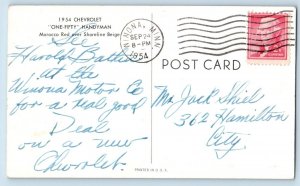 1954 CHEVROLET
"ONE-FIFTY" HANDYMAN
Morocco Red over Shoreline Beige
WINONA, MINN.
SEP 24
8-PM
1954
POST CARD
See
Harold Batte
at the
Winona Motor Co
for a real good
Deal
on a new
Chevrolet
Mr. Jack Shiel
362 Hamilton
City.
PRINTED IN U.S.A.